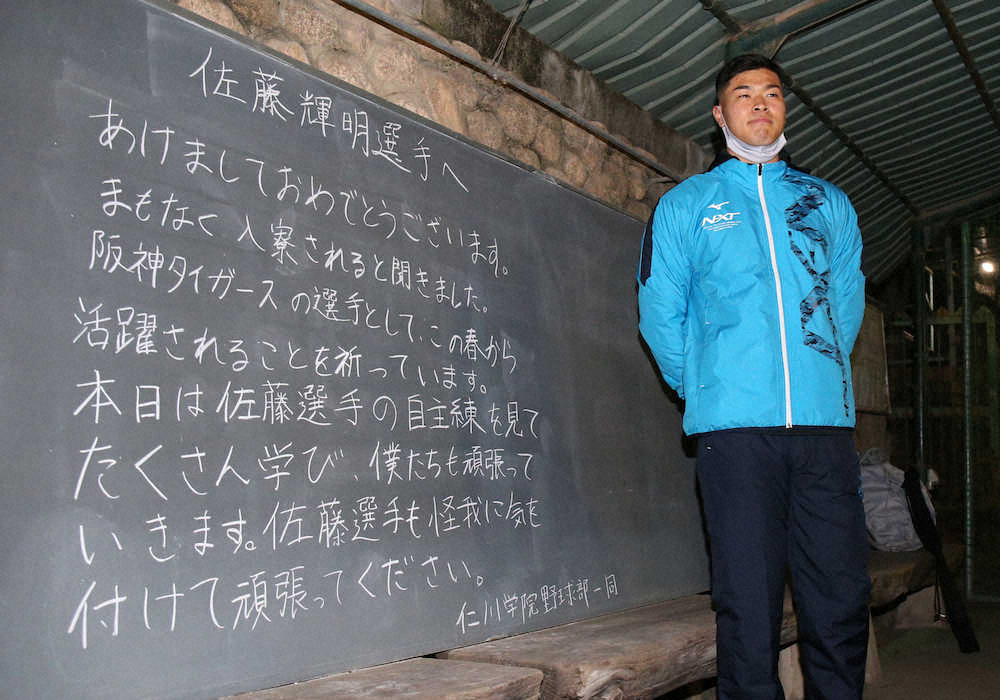 佐藤輝明選手へ
あけましておめでとうございます。
まもなく入寮されると聞きました。
阪神タイガースの選手として、この春から
活躍されることを祈っています。
本日は佐藤選手の自主練を見て
たくさん学び、僕たちも頑張って
いきます。佐藤選手も怪我に気を
付けて頑張ってください。
仁川学院野球部一同
NEXT